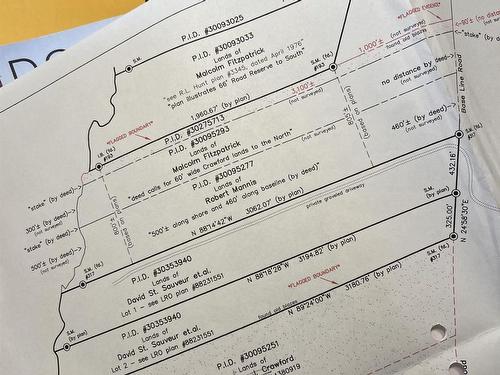 P.I.D. #30093025
P.I.D. #30093033
Lands of
Malcolm Fitzpatrick
"see R.L. Hunt plan #3345, dated April 1976"
"plan illustrates 66' Road Reserve to South"
S.M.
S.M. (fd.)
#193
1,060.67' (by plan)
*FLAGGED EVIDENCE*
1,000'±
(not surveyed)
found old blazes
no distance by deed
Base Line Road
*FLAGGED BOUNDARY*
P.I.D. #30275713
3,100'±
(not surveyed)
P.I.D. #30095293
Lands of
Malcolm Fitzpatrick
"deed calls for 60' wide Crawford lands to the North"
(not surveyed)
805'±
(based on plans)
460'± (by deed)
(not surveyed)
S.M. (fd.)
"stake" (by deed)
300'± (by deed)
(not surveyed)
"stake" (by deed)
500'± (by deed)
(not surveyed)
(based on plans)
P.I.D. #30095277
Lands of
Robert Mannis
"500'± along shore and 460' along baseline (by deed)"
(not surveyed)
N 88°14'42"W
3062.07' (by plan)
private graveled driveway
432.16'
S.M.
(by plan)
325.00'
N 24°38'30"E
S.M. (fd.)
#317
S.M. (fd.)
#317
P.I.D. #30353940
Lands of
David St. Sauveur et.al.
Lot 1 - see LRO plan #88231551
N 88°18'28"W
3194.82' (by plan)
*FLAGGED BOUNDARY*
S.M.
(by plan)
P.I.D. #30353940
Lands of
David St. Sauveur et.al.
Lot 2 - see LRO plan #88231551
found old blazes
N 89°24'00"W
3180.76' (by plan)
P.I.D. #30095251
Lands of
Crawford